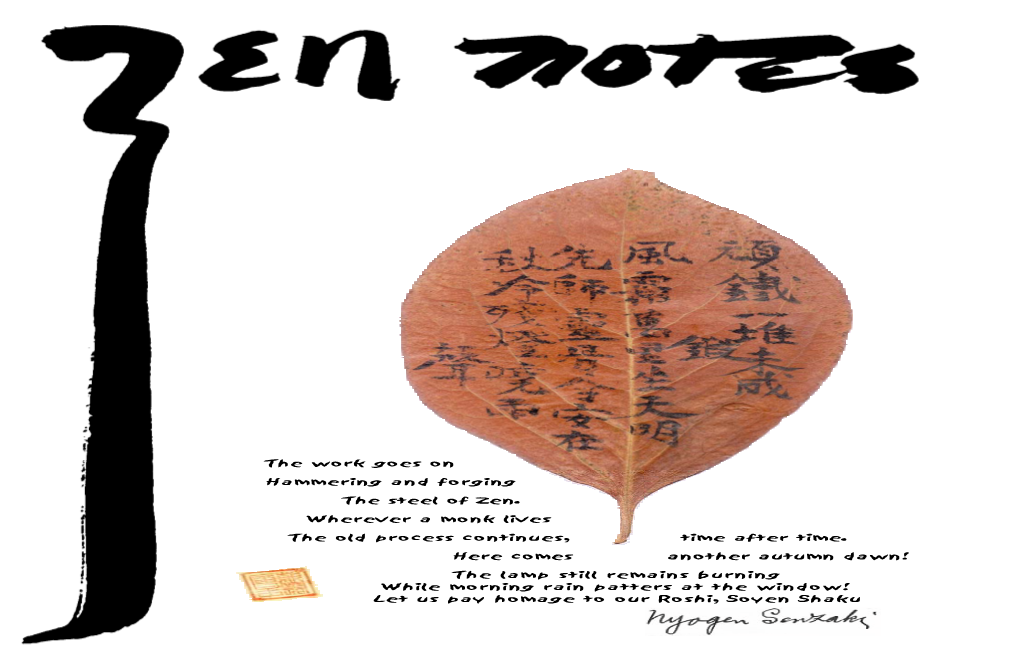 zen notes
頑鐵一堆未成
鍛
風霜萬里坐天明
先師靈骨今安在
秋冷残燈暁雨
聲
The work goes on
Hammering and forging
The steel of Zen.
Wherever a monk lives
The old process continues, time after time.
Here comes another autumn dawn!
The lamp still remains burning
While morning rain patters at the window!
Let us pay homage to our Roshi, Soyen Shaku
Nyogen Senzaki